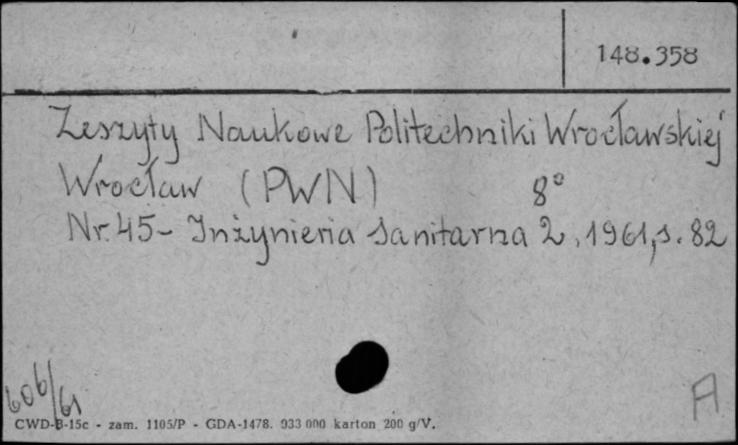 148.358
Zeszyty Naukowe Politechniki Wrocławskiej
Wrocław (PWN) 8°
Nr. 45 - Inżynieria Sanitarna 2, 1961, s. 82
606/61
A
CWD-B-15c - zam. 1105/P - GDA-1478. 933 000 karton 200 g/V.